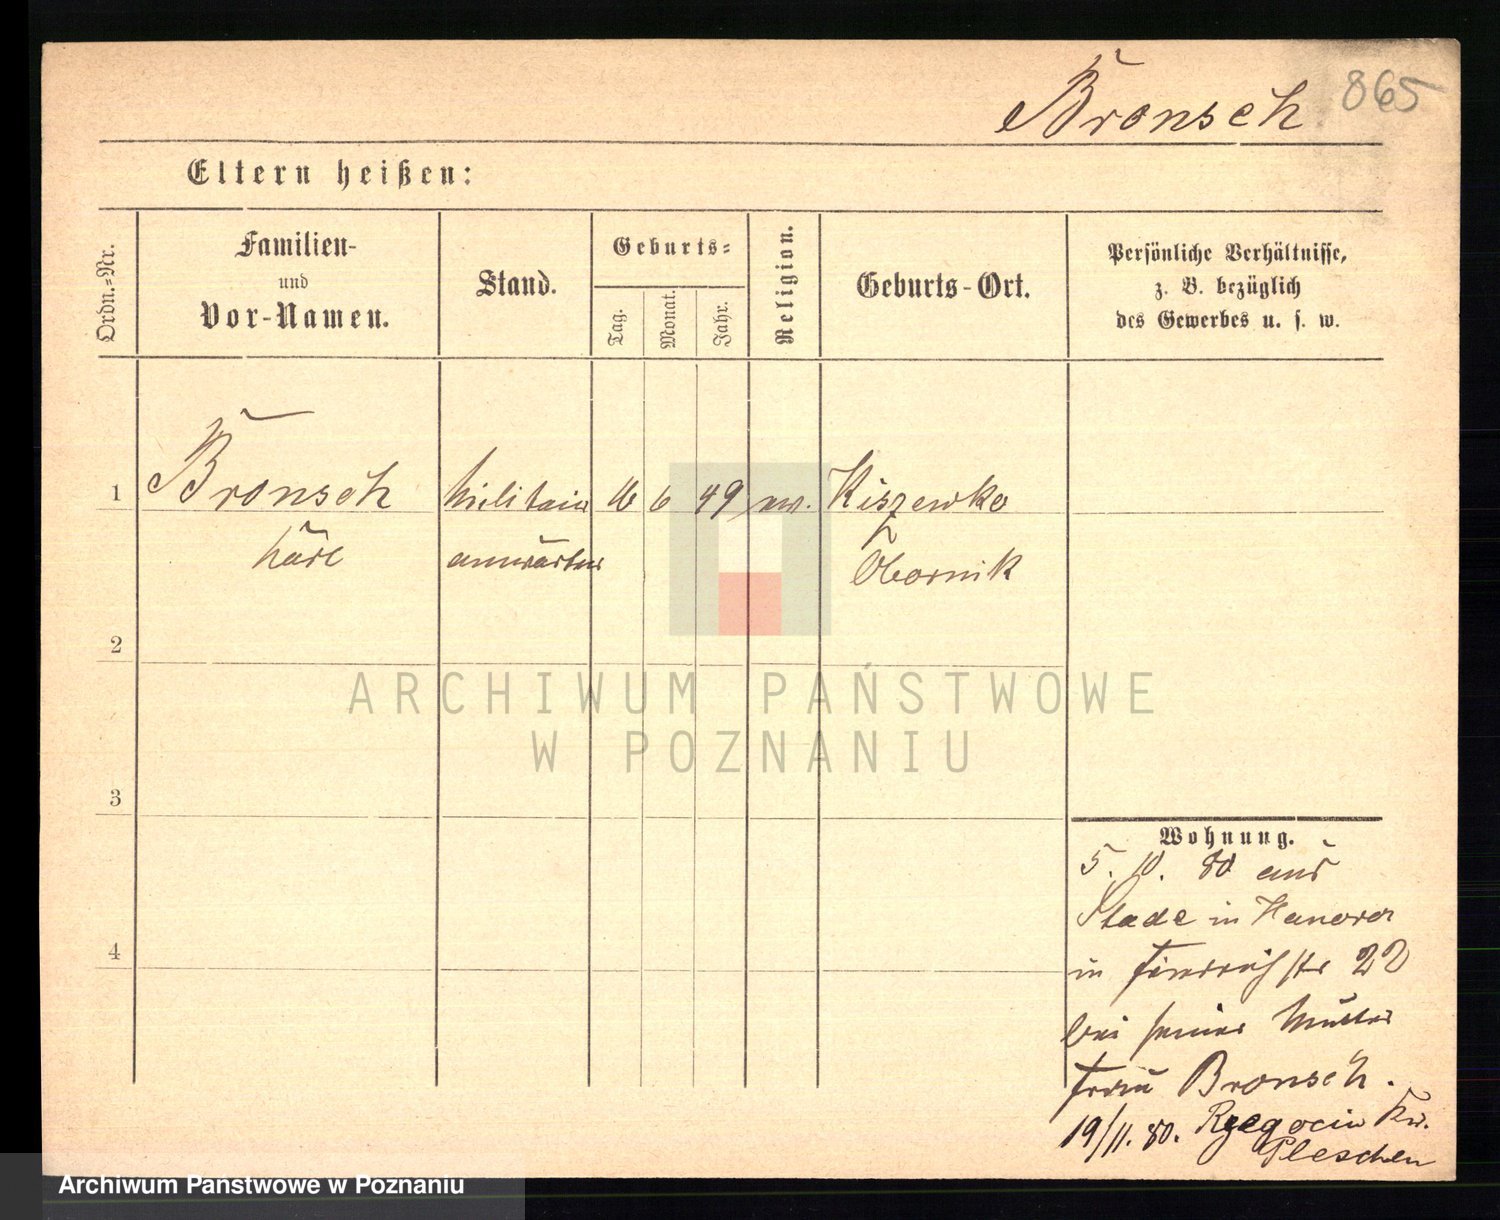 Bronsch 865
Eltern heißen:
Ordn.-Nr.
Familien-
und
Vor-Namen.
Stand.
Geburts-
Tag.
Monat.
Jahr.
Religion.
Geburts-Ort.
Persönliche Verhältnisse,
z. B. bezüglich
des Gewerbes u. s. w.
1 Bronsch Militair 6 49 ev. Kiszewko
Karl anwärter Obornik
2
3
4
ARCHIWUM PAŃSTWOWE
W POZNANIU
Wohnung.
5. 10. 80 aus
Stade in Hanover
in str 22
bei seiner Mutter
Frau Bronsch.
19/11. 80. Rzegocin Kr.
Pleschen
Archiwum Państwowe w Poznaniu